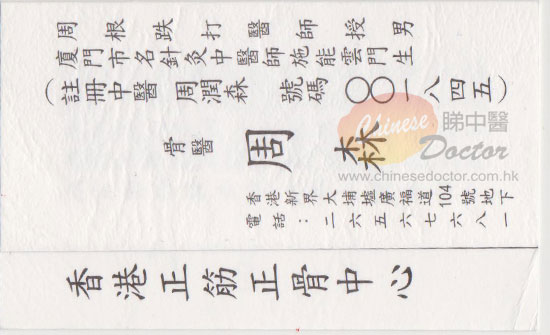 周根跌打醫師授男
廈門市名針灸中醫師施能雲門生
（註冊中醫 周潤森 號碼〇〇一八四五）
骨醫 周森
香港新界大埔墟廣福道104號地下
電話：二六五六七六八一
香港正筋正骨中心
Chinese
睇中醫
Doctor
www.chinesedoctor.com.hk